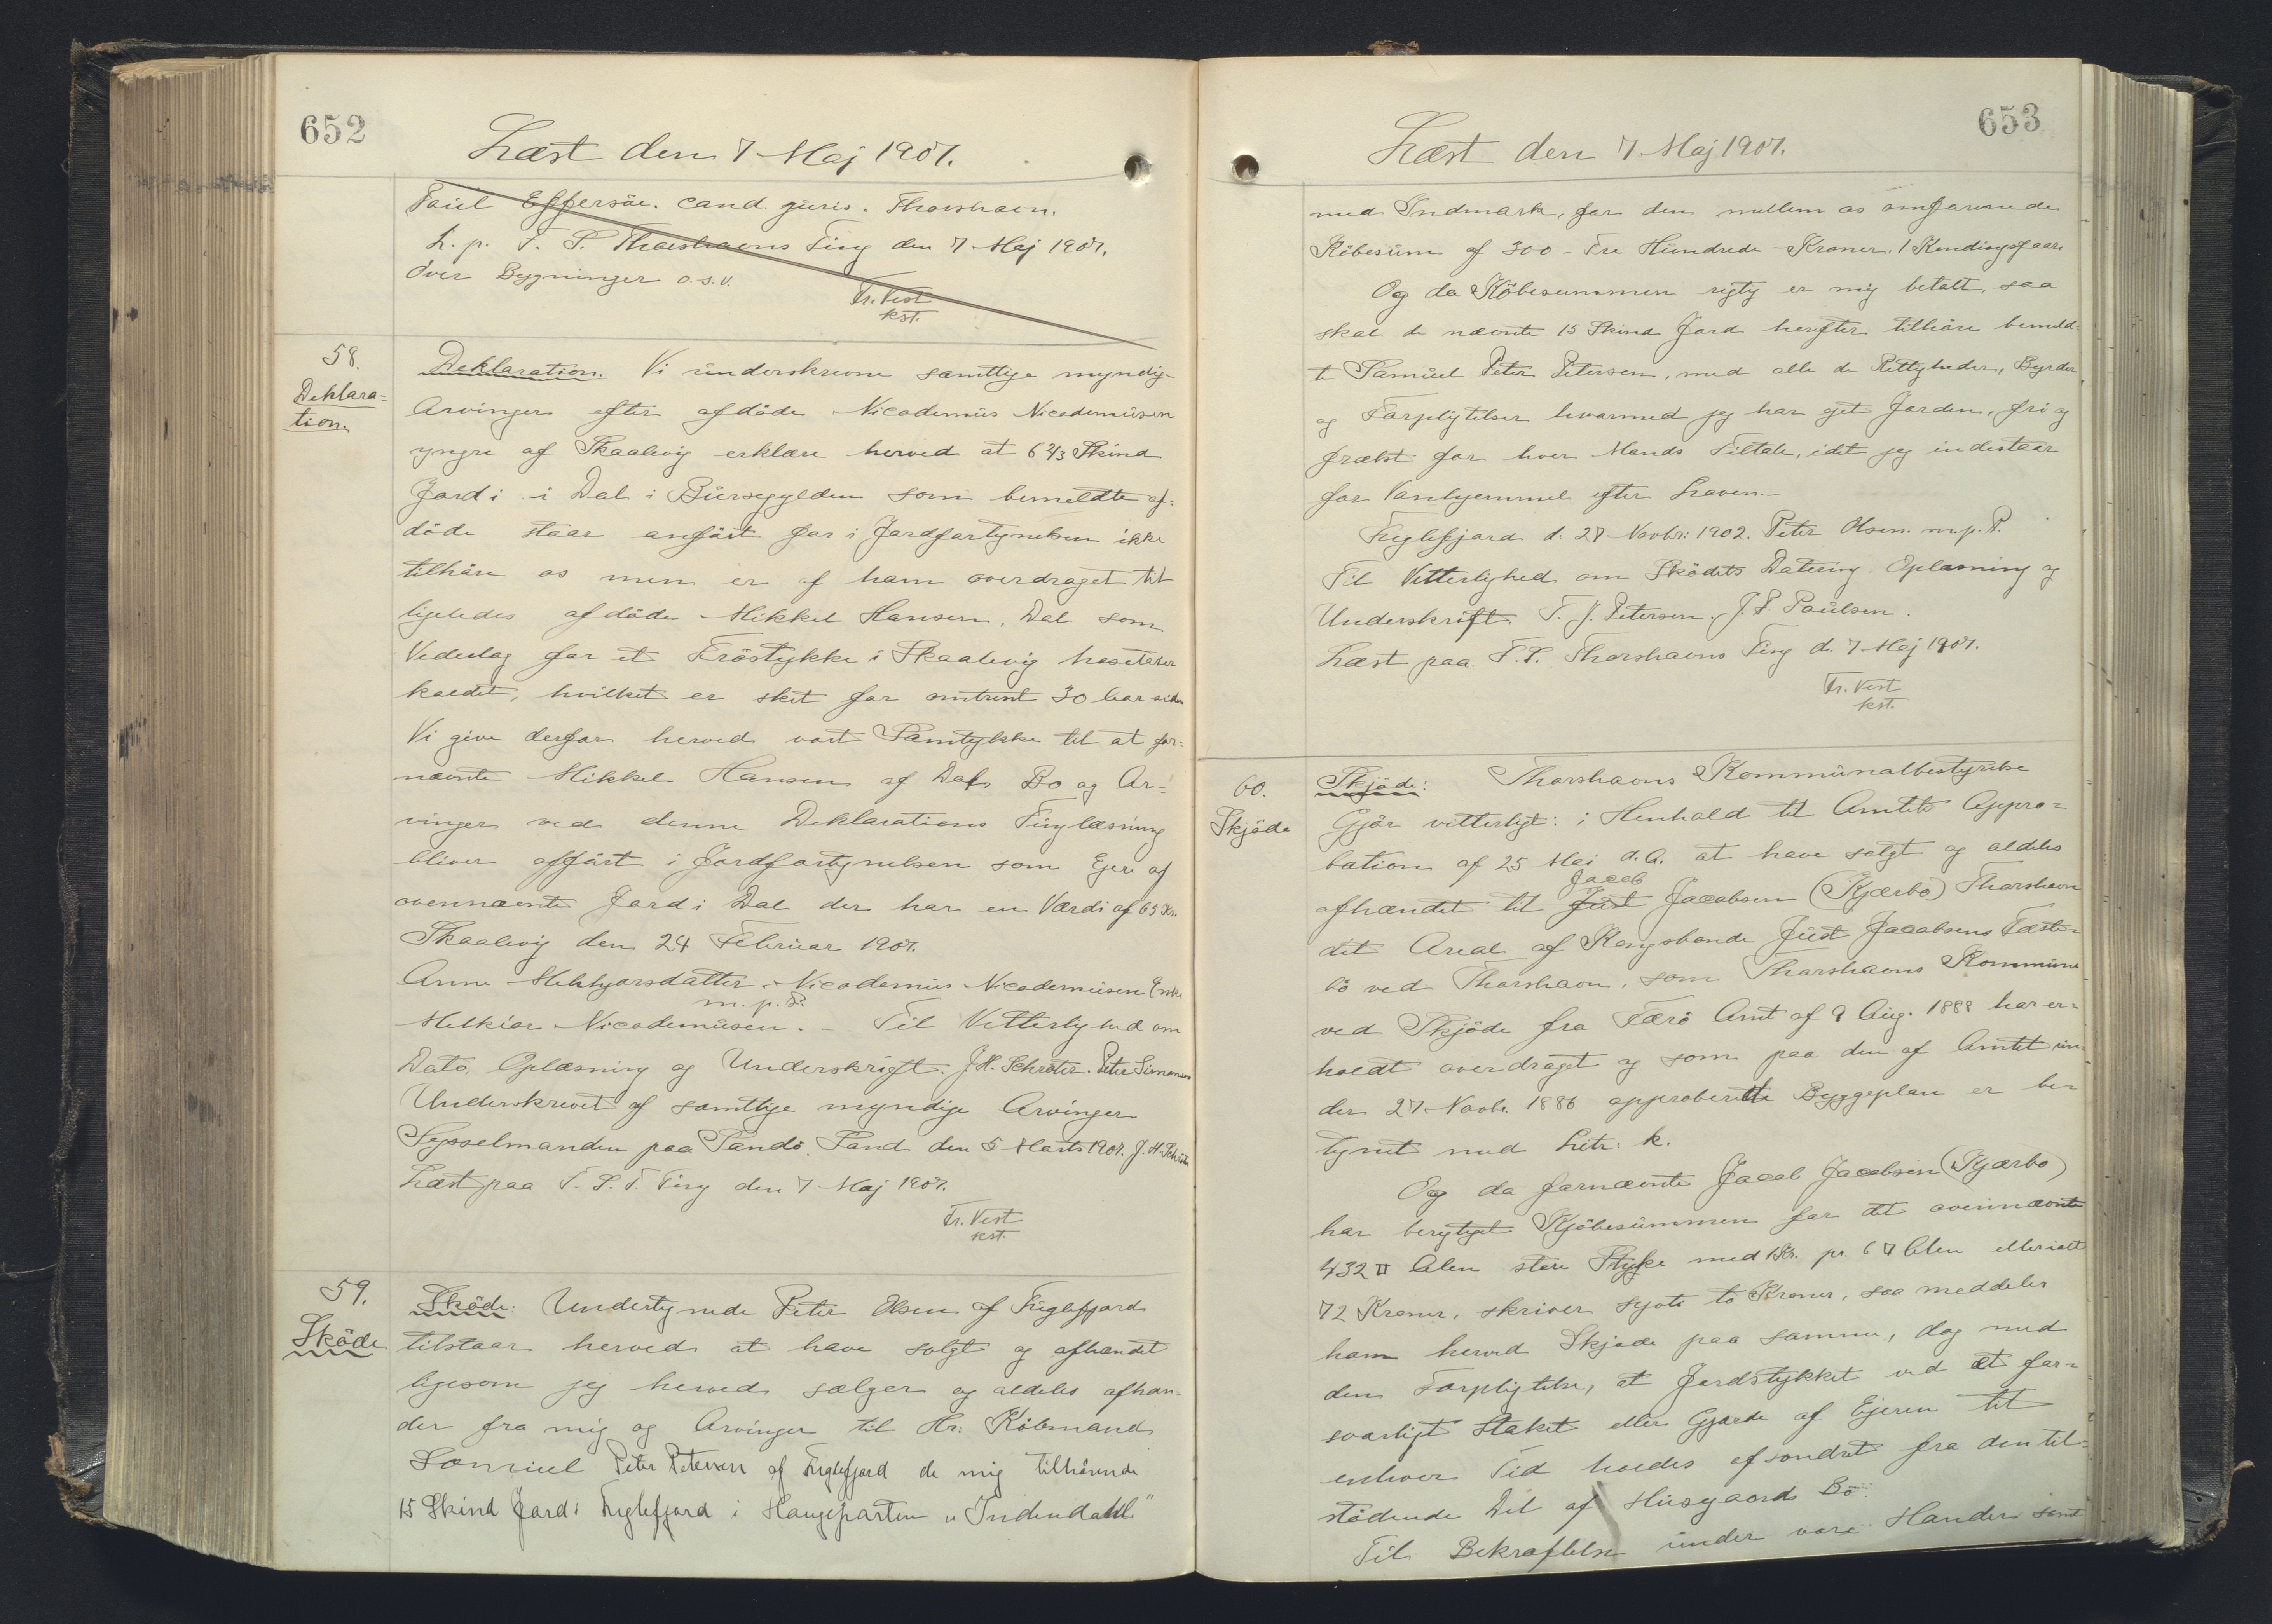 652
Læst den 7 Maj 1907.
Poul Effersöe. cand. juris. Thorshavn.
L. p. F. S. Thorshavns Ting den 7 Maj 1907.
Over Bygninger o.s.v.
Fr. Vest
kst.
58.
Deklara=
tion.
Deklaration. Vi underskrevne samtlige myndige
Arvinger efter afdöde Nicodemüs Nicodemüsen
yngre af Skaalevig erklære herved at 6 2/3 Skind
Jord i i Dal i Bürsegylden som bemeldte af=
döde staar anfört for i Jordfortegnelsen ikke
tilhöre os men er af ham overdraget til
ligeledes afdöde Mikkel Hansen, Dal som
Vederlag for et Tröstykke i Skaalevig
kaldet, hvilket er sket for omtrent 30 Aar siden
Vi give derfor herved vort Samtykke til at for=
nævnte Mikkel Hansen af Dals Bo og Ar=
vinger ved denne Deklarations Tinglæsning
bliver opfört i Jordfortegnelsen som Ejere af
ovennævnte Jord i Dal der har en Værdi af 65 Kr.
Skaalevig den 24 Februar 1907.
Anne Melkjorsdatter, Nicodemüs Nicodemüsen Enke
m. p. P.
Melkior Nicodemüsen. - Til Vitterlighed om
Dato, Oplæsning og Underskrift. J.H. Schröter. Peter Simonsen
Underskrevet af samtlige myndige Arvinger
Sysselmanden paa Sandö, Sand den 5 Marts 1907. J. H. Schröter
Læst paa F. S. T. Ting den 7 Maj 1907.
Fr. Vest
kst.
59.
Sköde
Sköde: Undertegnede Peter Olsen af Fuglefjord
tilstaar herved at have solgt og afhændet
ligesom jeg herved sælger og aldeles afhæn=
der fra mig og Arvinger til Hr. Köbmand
Samüel Peter Petersen af Fuglefjord de mig tilhörende
15 Skind Jord i Fuglefjord i Haugeparten „Indendahl"
653
Læst den 7 Maj 1907.
med Indmark, for den mellem os omforenede
Köbesüm af 300 - Tre Hündrede - Kroner. 1 Kendingsfaar
Og da Köbesummen rigtig er mig betalt, saa
skal de nævnte 15 Skind Jord herefter tilhöre bemeld=
te Samüel Peter Petersen, med alle de Rettigheder, Byrder
og Forpligtelser hvormed jeg har ejet Jorden, fri og
frælst for hver Mands Tiltale, idet jeg indestaar
for Vanhjemmel efter Loven.-
Fuglefjord d. 27 Novbr: 1902. Peter Olsen. m.p.P.
Til Vitterlighed om Sködets Datering Oplæsning og
Underskrift. T. J. Petersen, J. P. Poülsen.
Læst paa F. S. Thorshavns Ting d. 7 Maj 1907.
Fr. Vest
kst.
60.
Skjöde
Skjöde: Thorshavns Kommünalbestyrelse
Gjör vitterligt: i Henhold til Amtets Appro=
bation af 25 Mai d. A. at have solgt og aldeles
Jacob
afhændet til Jüst Jacobsen (Kjærbo) Thorshavn
det Areal af Kongsbonde Jüst Jacobsens Fæste=
bö ved Thorshavn, som Thorshavns Kommüne
ved Skjöde fra Færö Amt af 9 Aüg. 1888 har er=
holdt overdraget og som paa den af Amtet ün=
der 27 Novbr. 1886 approberette Byggeplan er be=
tegnet med Litr. k.
Og da fornævnte Jacob Jacobsen (Kjærbo)
har berigtiget Kjöbesümmen for det ovennævnte
432 □ Alen store Stykke med 1 Kr. pr. 6 □ Alen eller ialt
72 Kroner, skriver syoti to Kroner, saa meddeler
ham herved Skjøde paa samme, dog med
den Forpligtelse, at Jordstykket ved et for=
svarligt Staket eller Gjærde af Ejeren til
enhver Tid holdes afsondret fra den til=
stödende Del af Hüsgaards Bö.
Til Bekræftelse ünder vore Hænder samt